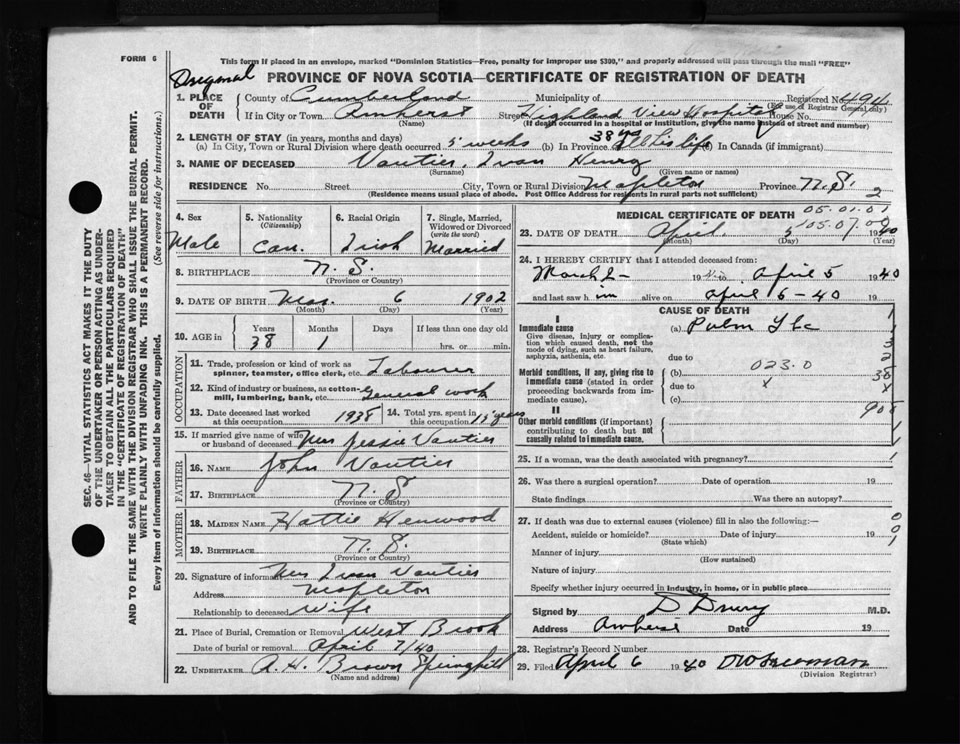 FORM 6
This form if placed in an envelope, marked "Dominion Statistics—Free, penalty for improper use $300," and properly addressed will pass through the mail "FREE"
Original
PROVINCE OF NOVA SCOTIA—CERTIFICATE OF REGISTRATION OF DEATH
SEC. 46—VITAL STATISTICS ACT MAKES IT THE DUTY
OF THE UNDERTAKER OR PERSON ACTING AS UNDER-
TAKER TO OBTAIN ALL THE PARTICULARS REQUIRED
IN THE "CERTIFICATE OF REGISTRATION OF DEATH"
AND TO FILE THE SAME WITH THE DIVISION REGISTRAR WHO SHALL ISSUE THE BURIAL PERMIT.
(See reverse side for instructions.)
WRITE PLAINLY WITH UNFADING INK. THIS IS A PERMANENT RECORD.
Every item of information should be carefully supplied.
1. PLACE OF DEATH
County of Cumberland Municipality of Registered No. 494
(For use of Registrar General only)
If in City or Town Amherst Street Highland View Hospital House No.
(Name) (If death occurred in a hospital or institution, give the name instead of street and number)
2. LENGTH OF STAY (in years, months and days) 38 yrs
(a) In City, Town or Rural Division where death occurred 5 weeks (b) In Province All his life (c) In Canada (if immigrant)
3. NAME OF DECEASED Vautier, Ivan Henry
(Surname) (Given name or names)
RESIDENCE No. Street City, Town or Rural Division Mapleton Province N.S. 2
(Residence means usual place of abode. Post Office Address for residents in rural parts not sufficient)
4. Sex Male
5. Nationality (Citizenship) Can.
6. Racial Origin Irish
7. Single, Married, Widowed or Divorced (write the word) Married
8. BIRTHPLACE N.S.
(Province or Country)
9. DATE OF BIRTH Mar. 6 1902
(Month) (Day) (Year)
10. AGE in Years 38 Months 1 Days If less than one day old
hrs. or min.
OCCUPATION
11. Trade, profession or kind of work as
spinner, teamster, office clerk, etc. Labourer
12. Kind of industry or business, as cotton-
mill, lumbering, bank, etc. General work
13. Date deceased last worked
at this occupation 1938
14. Total yrs. spent in
this occupation 15 years
15. If married give name of wife
or husband of deceased Mrs Jessie Vautier
FATHER
16. NAME John Vautier
17. BIRTHPLACE N.S
(Province or Country)
MOTHER
18. MAIDEN NAME Hattie Henwood
19. BIRTHPLACE N.S.
(Province or Country)
20. Signature of informant Mrs Ivan Vautier
Address Mapleton
Relationship to deceased Wife
21. Place of Burial, Cremation or Removal West Brook
Date of burial or removal April 7/40
22. UNDERTAKER A. H. Brown Springhill
(Name and address)
MEDICAL CERTIFICATE OF DEATH 05.01.01
105.07.0
23. DATE OF DEATH April 5 1940
(Month) (Day) (Year)
24. I HEREBY CERTIFY that I attended deceased from:
March 2 19 to April 5 1940
and last saw h im alive on April 5-40 19
CAUSE OF DEATH
I
Immediate cause (a) Pulm Tbc
Give disease, injury or complica-
tion which caused death, not the
mode of dying, such as heart failure,
asphyxia, asthenia, etc. due to
Morbid conditions, if any, giving rise to
immediate cause (stated in order
proceeding backwards from
immediate cause).
(b) 023.0
due to x
(c)
II
Other morbid conditions (if important)
contributing to death but not
causally related to immediate cause.
1
3
2
38
x
908
1
1
25. If a woman, was the death associated with pregnancy?
26. Was there a surgical operation? Date of operation 19
State findings Was there an autopsy?
27. If death was due to external causes (violence) fill in also the following:—
Accident, suicide or homicide? Date of injury 19
(State which)
Manner of injury
(How sustained)
Nature of injury
0
0
1
Specify whether injury occurred in industry, in home, or in public place
Signed by D Drury M.D.
Address Amherst Date 19
28. Registrar's Record Number
29. Filed April 6 1940
(Division Registrar)